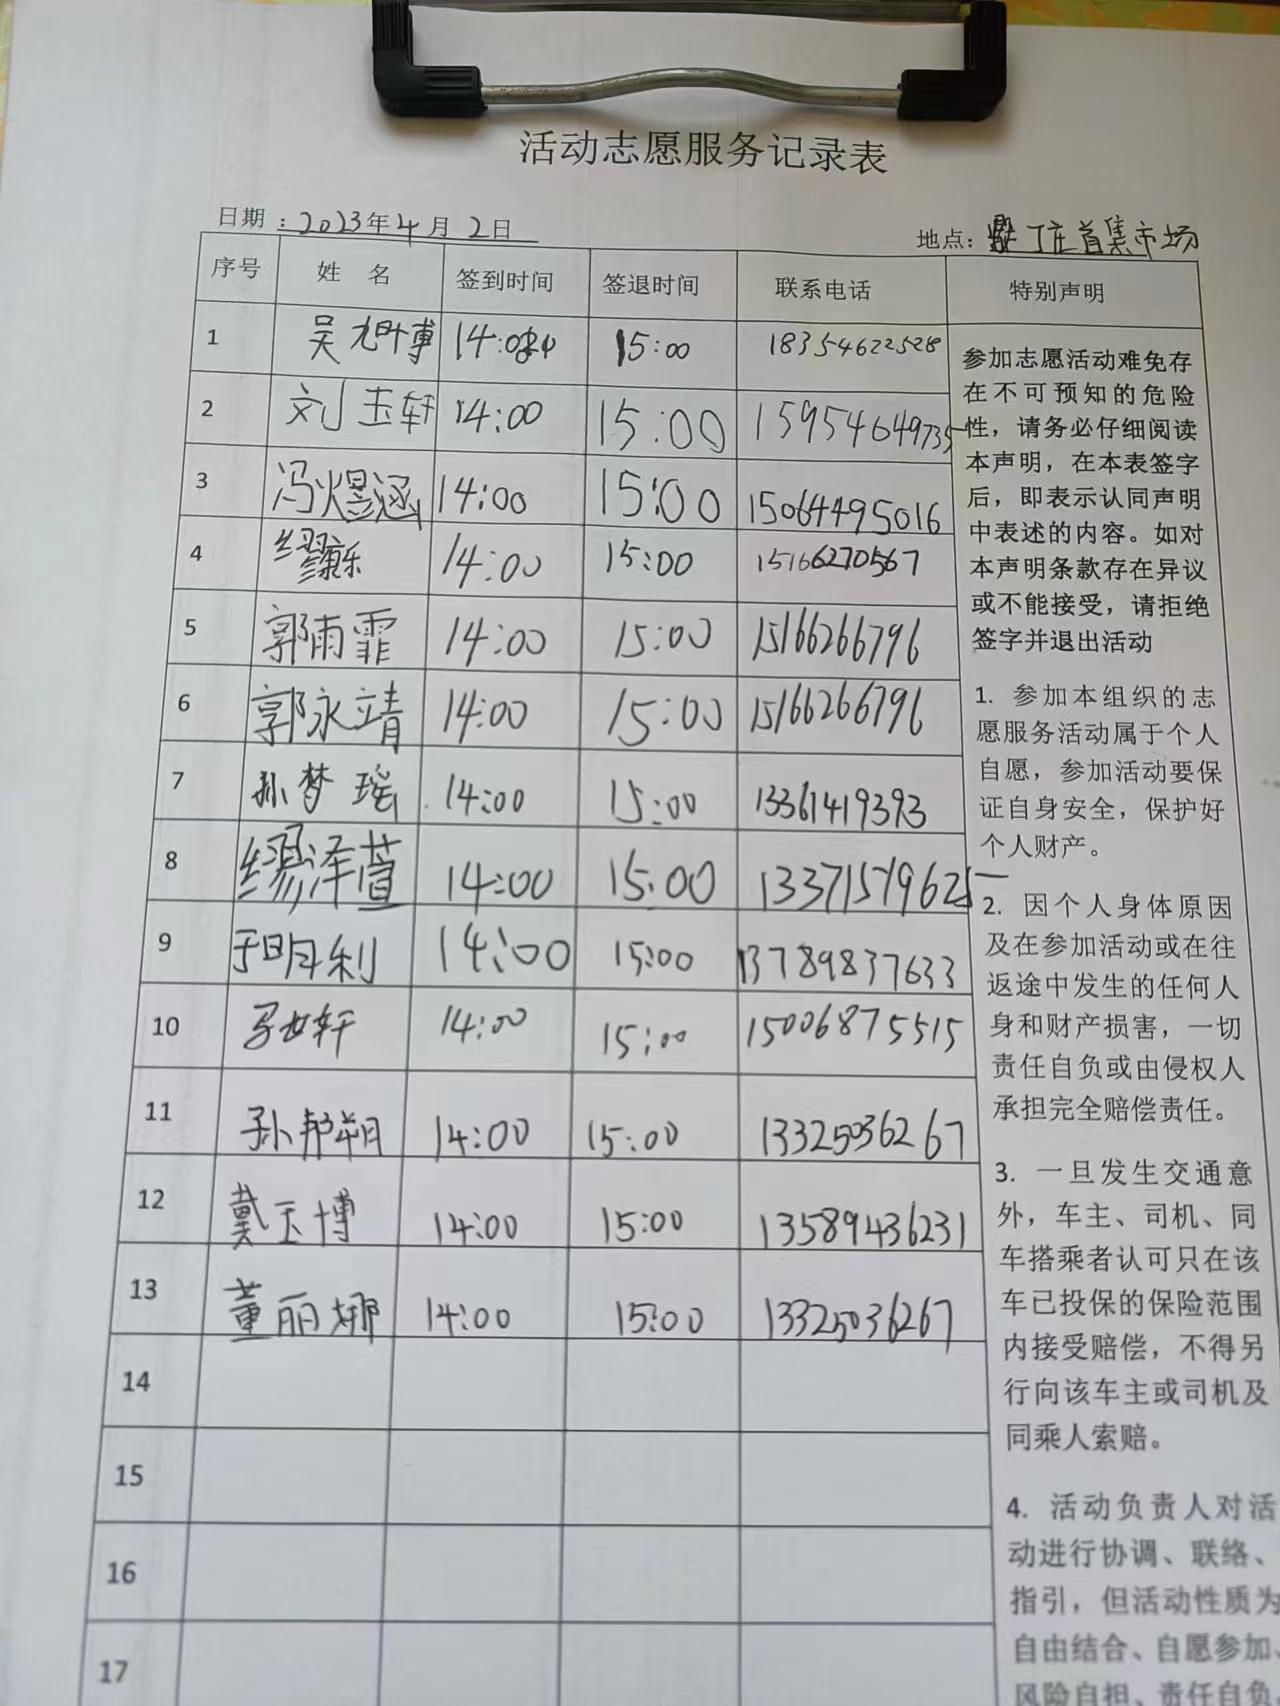 活动志愿服务记录表
日期：2023年4月2日
地点： 丁庄首集市场
序号 姓 名 签到时间 签退时间 联系电话 特别声明
1 吴旭博 14:00 15:00 18354622528
2 刘玉轩 14:00 15:00 15954649735
3 冯煜涵 14:00 15:00 15064495016
4 14:00 15:00 15166270567
5 郭雨霏 14:00 15:00 15166266796
6 郭永靖 14:00 15:00 15166266796
7 孙梦瑶 14:00 15:00 13361419393
8 缪泽萱 14:00 15:00 13371571962
9 于明利 14:00 15:00 13789837633
10 轩 14:00 15:00 15006875515
11 孙邦翔 14:00 15:00 13325036267
12 戴玉博 14:00 15:00 13589436231
13 董丽娜 14:00 15:00 13325036267
14
15
16
17
参加志愿活动难免存
在不可预知的危险
性，请务必仔细阅读
本声明，在本表签字
后，即表示认同声明
中表述的内容。如对
本声明条款存在异议
或不能接受，请拒绝
签字并退出活动
1. 参加本组织的志
愿服务活动属于个人
自愿，参加活动要保
证自身安全，保护好
个人财产。
2. 因个人身体原因
及在参加活动或在往
返途中发生的任何人
身和财产损害，一切
责任自负或由侵权人
承担完全赔偿责任。
3. 一旦发生交通意
外，车主、司机、同
车搭乘者认可只在该
车已投保的保险范围
内接受赔偿，不得另
行向该车主或司机及
同乘人索赔。
4. 活动负责人对活
动进行协调、联络、
指引，但活动性质为
自由结合、自愿参加、
风险自担、责任自负